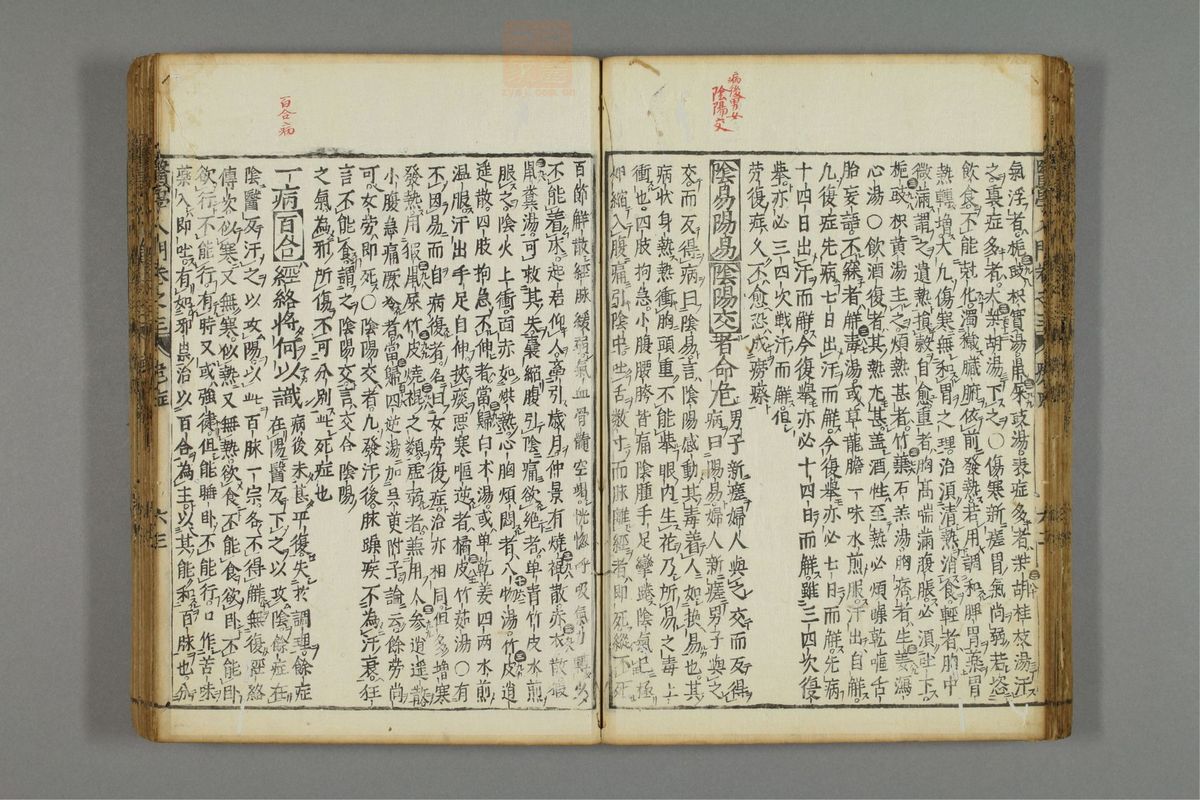 病後男女
陰陽交
氣浮者梔豉枳實湯鼠屎豉湯裏症多者柴胡桂枝湯汗
之裏症多者大柴胡湯下之○傷寒新瘥胃氣尚弱若恣
飲食不能尅化濁穢臟腑依前發熱若用調和脾胃藥胃
熱輙增大凡傷寒無和胃之理治須清熱消食輕者胸中
微滿謂之遺熱損穀自愈重者胸高喘滿腹脹必須吐下
梔豉枳黄湯主之煩熱甚者竹葉石羔湯胸痞者生姜瀉
心湯○飲酒復者其熱尤甚盖酒性至熱必煩噪乾嘔舌
胎妄語不寐者解毒湯或草龍膽一味水煎服汗出自解
凡復症先病七日出汗而解今復舉亦必七日而解先病
十四日出汗而解今復舉亦必十四日而解雖三四次復
舉亦必三四次戰汗而解但
劳復症久不愈恐成癆瘵
陰易陽易陰陽交者命危 男子新瘥婦人與之交而反得
病曰陽易婦人新瘥男子與之
交而反得病曰陰易言陰陽感動其毒着人如換易也其
病狀身熱熱衝胸頭重不能舉眼内生花乃所易之毒上
衝也四肢拘急小腹腰胯皆痛陰腫手足攣踡陰氣已極
卵縮入腹痛引陰中吐舌数寸而脉離經者即死縱不死
百合病
百節解散經脉緩弱氣血骨髓空竭恍惚呼吸氣力轉少
不能着床起居仰人牽引歳月仲景有燒裩散赤衣散猳
鼠糞湯可救其失囊縮腹引陰痛欲绝者单青竹皮水煎
服之陰火上衝面赤如烘熱心胸煩悶者八物湯竹皮逍
遥散四肢拘急不伸者當歸白术湯或单乾姜四两水煎
温服汗出手足自伸挾痰惡寒嘔逆者橘皮竹茹湯○有
不因易而自病復者名曰女劳復症治亦相同但多增寒
發熱用猳鼠屎竹皮燒裩之類虛弱者兼用人参逍遥散
小腹急痛厥冷者當歸四逆湯加吴萸附子論云餘劳尚
可女劳即死○陰陽交者凡發汗後脉躁疾不為汗衰狂
言不能食謂之陰陽交言交合陰陽
之氣為邪所傷不可分別此死症也
一病百合經絡將何以識 病後未甚平復失於調理餘症在
陰醫反汗之以攻陽以此百脉一宗各不得解無復經絡
傳次似寒又無寒似熱又無熱欲食不能食欲卧不能卧
欲行不能行有時又或強徤但能睡卧不能行口作苦味
藥入即吐有如邪祟治以百合為主以其能和百脉也分